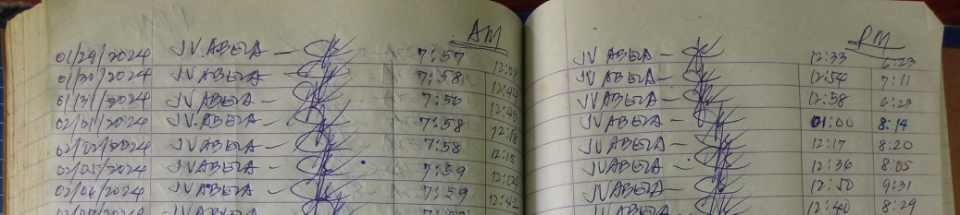 AM PM
01/29/2024 JV.ABELA 7:57 JV ABELA 12:33 6:23
01/30/2024 JV ABELA 7:58 12:42 JV ABELA 12:54 7:11
01/31/2024 JV ABELA 7:56 JV ABELA 12:58
02/01/2024 JV.ABELA 7:58 12:18 JV ABELA 01:00 8:19
02/02/2024 JV ABELA 7:58 12:15 JV ABELA 12:17 8:20
02/05/2024 JV ABELA 7:59 JV ABELA 12:36 8:05
02/06/2024 JV ABELA 7:59 12:42 JV ABELA 12:50 9:31
JV ABELA JV ABELA 12:40 8:29